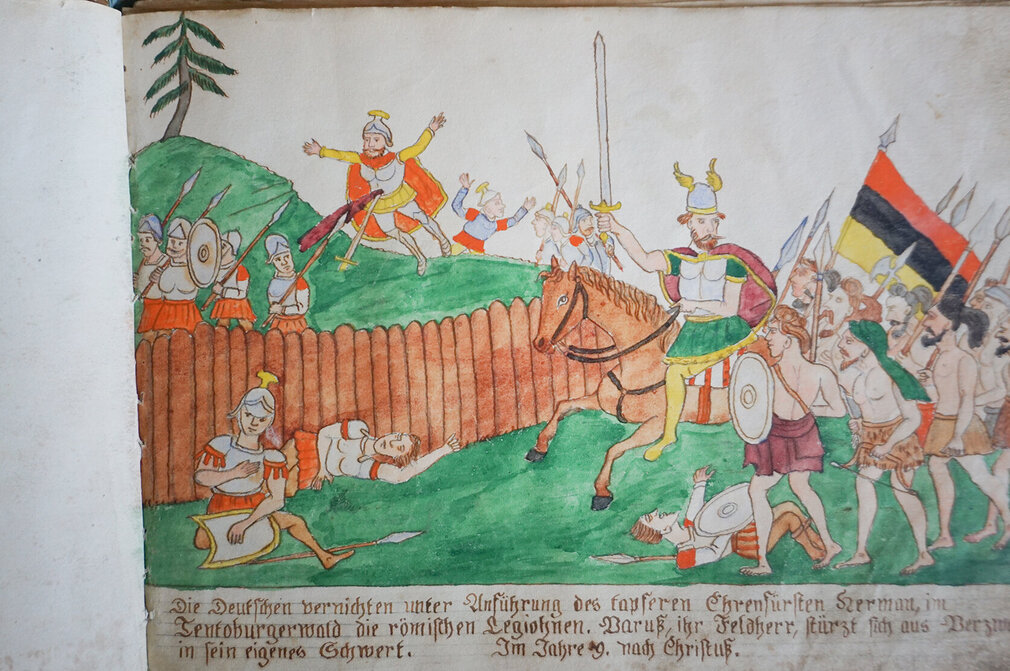 Die Deutschen vernichten unter Anführung des tapferen Ehrenfürsten Herman, im
Teutoburgerwald die römischen Legiohnen. Varuß, ihr Feldherr, stürzt sich aus
in sein eigenes Schwert. Im Jahre 9. nach Christuß.